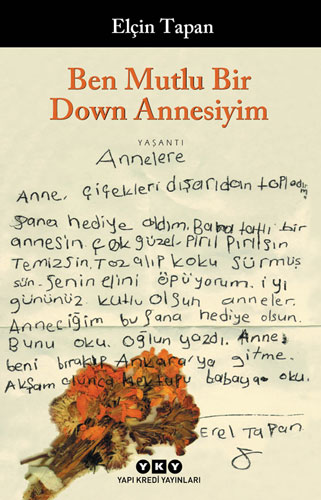 Elçin Tapan
Ben Mutlu Bir
Down Annesiyim
YAŞANTI
Annelere
Anne, çiçekleri dışarıdan topladım
Sana hediye aldım. Baba tatlı bir
annesin. Çok güzel - Pırıl Pırılsın
Temizsin. Toz alıp koku sürmüş
sün - Senin elini öpüyorum. iyi
gününüz kutlu olsun anneler.
Anneciğim bu sana hediye olsun.
Bunu oku. Oğlun yazdı. Anne
beni bırakıp Ankara'ya gitme.
Akşam olunca mektupu babaya oku.
Erel Tapan
YKY
YAPI KREDİ YAYINLARI